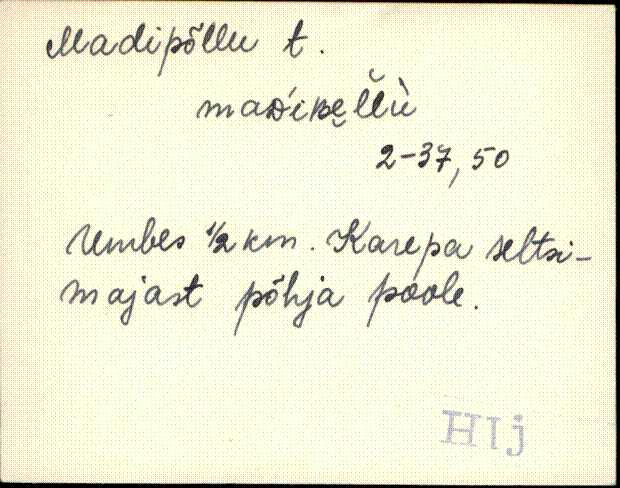 Madipõllu t.
maᴅ́iʙe̮l̆l̆ù
2-37,50
Umbes ½ km. Karepa seltsi-
majast põhja poole.
Hlj